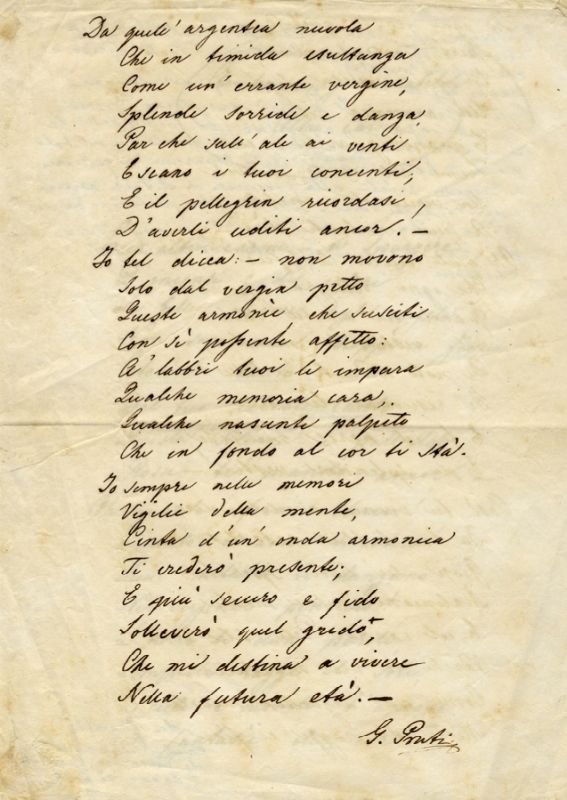 Da quell'argentea nuvola
Che in timida esultanza
Come un'errante vergine,
Splende sorride e danza,
Par che sull'ale ai venti
Escano i tuoi concenti;
E il pellegrin ricordasi,
D'averli uditi ancor. —
Io tel dicea: — non movono
Solo dal vergin petto
Queste armonie, che susciti
Con sì possente affetto:
A' labbri tuoi le impara
Qualche memoria cara,
Qualche nascente palpito
Che in fondo al cor ti stà.
Io sempre nelle memori
Vigilie della mente,
Cinta d'un'onda armonica
Ti crederò presente;
E più securo e fido
Solleverò quel grido,
Che mi destina a vivere
Nella futura età. —
G. Prati